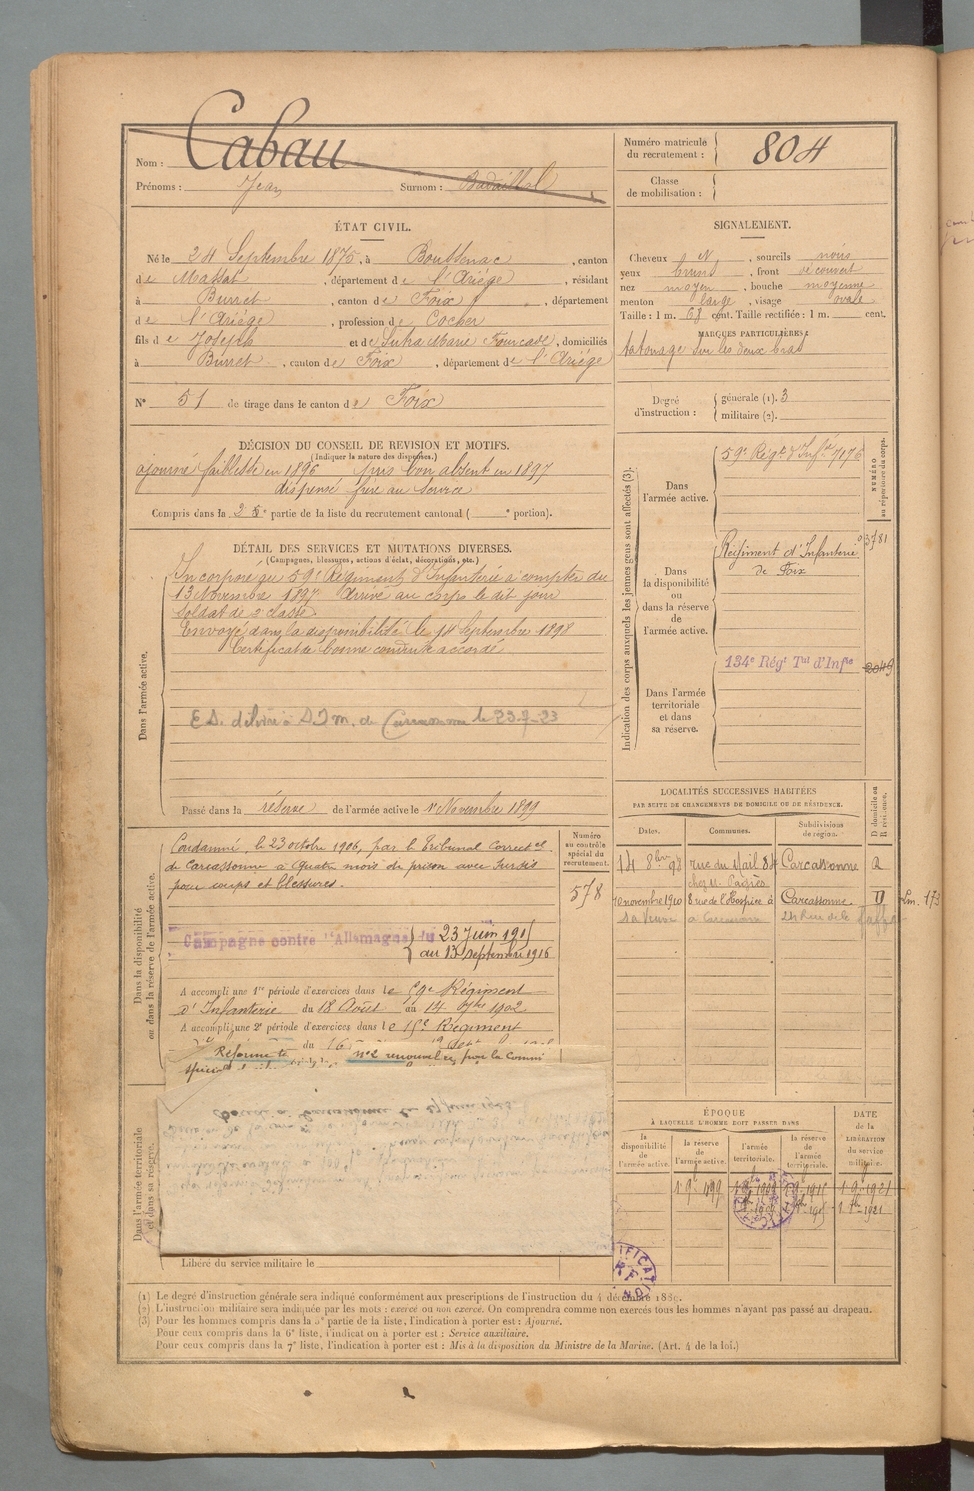 Nom : Cabau
Prénoms : Jean Surnom :
Numéro matricule du recrutement : 804
Classe de mobilisation :
ÉTAT CIVIL.
Né le 24 Septembre 1875, à Boussenac, canton
de Massat, département de l'Ariège, résidant
à Burret, canton de Foix, département
de l'Ariège, profession de Cocher
fils de Joseph et de Sutra Marie Fourcade, domiciliés
à Burret, canton de Foix, département de l'Ariège
N° 51 de tirage dans le canton de Foix
SIGNALEMENT.
Cheveux N, sourcils noirs
yeux bruns, front découvert
nez moyen, bouche moyenne
menton large, visage ovale
Taille : 1 m. 68 cent. Taille rectifiée : 1 m. cent.
MARQUES PARTICULIÈRES :
tatouage sur les deux bras
Degré d'instruction : générale (1). 3
militaire (2).
DÉCISION DU CONSEIL DE REVISION ET MOTIFS.
(Indiquer la nature des dispenses.)
ajourné faiblesse en 1896 pris bon absent en 1897
dispensé frère au service
Compris dans la 2e partie de la liste du recrutement cantonal ( e portion).
DÉTAIL DES SERVICES ET MUTATIONS DIVERSES.
(Campagnes, blessures, actions d'éclat, décorations, etc.)
Dans l'armée active.
Incorporé au 59e Régiment d'Infanterie à compter du
13 Novembre 1897 Arrivé au corps le dit jour
soldat de 2e classe
Envoyé dans la disponibilité le 14 Septembre 1898
Certificat de bonne conduite accordé
E.S. délivré à S.I.M. de Carcassonne le 23-7-23
Passé dans la réserve de l'armée active le 1r Novembre 1899
Indication des corps auxquels les jeunes gens sont affectés (3).
NUMÉRO au répertoire du corps.
Dans l'armée active.
59e Régt d'Infie 7176
Dans la disponibilité ou dans la réserve de l'armée active.
Régiment d'Infanterie 3781
de Foix
Dans l'armée territoriale et dans sa réserve.
134e Régt Tal d'Infie 2049
LOCALITÉS SUCCESSIVES HABITÉES
PAR SUITE DE CHANGEMENTS DE DOMICILE OU DE RÉSIDENCE.
Dates. Communes. Subdivisions de région. D domicile ou R résidence.
14 8bre 98 rue du Mail 84 Carcassonne R
chez M. Pagès
10 novembre 1910 8 rue de l'Hospice à Carcassonne D
sa Veuve à Carcassonne 24 Rue de
Dans la disponibilité ou dans la réserve de l'armée active.
Numéro au contrôle spécial du recrutement.
578
Condamné, le 23 octobre 1906, par le tribunal Correctel
de Carcassonne à Quatre mois de prison avec sursis
pour coups et blessures.
Campagne contre l'Allemagne du 23 Juin 1915
au 13 septembre 1916
A accompli une 1re période d'exercices dans le 59e Régiment
d'Infanterie du 18 Août au 14 7bre 1902
A accompli une 2e période d'exercices dans le 15e Régiment
du 16
Réformé n°2 par la Commi
Dans l'armée territoriale et dans sa réserve
Libéré du service militaire le
ÉPOQUE
À LAQUELLE L'HOMME DOIT PASSER DANS
la disponibilité de l'armée active. la réserve de l'armée active. l'armée territoriale. la réserve de l'armée territoriale.
DATE de la LIBÉRATION du service militaire.
(1) Le degré d'instruction générale sera indiqué conformément aux prescriptions de l'instruction du 4 décembre 1889.
(2) L'instruction militaire sera indiquée par les mots : exercé ou non exercé. On comprendra comme non exercés tous les hommes n'ayant pas passé au drapeau.
(3) Pour les hommes compris dans la 5e partie de la liste, l'indication à porter est : Ajourné.
Pour ceux compris dans la 6e liste, l'indication à porter est : Service auxiliaire.
Pour ceux compris dans la 7e liste, l'indication à porter est : Mis à la disposition du Ministre de la Marine. (Art. 4 de la loi.)